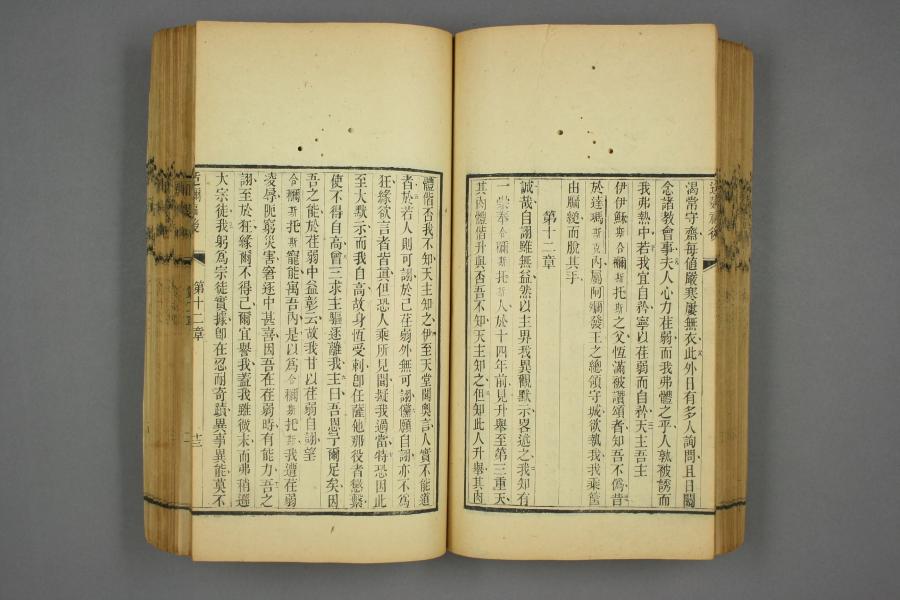 渴常守齋每値嚴寒屢無衣此外日有多人詢問且日關
念諸教會事夫人心力在弱而我弗體之乎人孰被誘而
我弗熱中若我宜自矜寧以在弱而自矜天主吾主
伊伊穌斯合爾斯托斯之父恆滿被讚頌者知吾不僞昔
於達瑪斯克內屬阿爾發王之總領守城欲執我我乘筐
由牖縋而脫其手
第十二章
誠哉自詡雖無益然以主畀我異觀默示畧述之我知有
一崇奉合爾斯托斯人於十四年前見升舉至第三重天
其肉體偕升與否吾不知天主知之但知此人升舉其肉
體偕否我不知天主知之伊至天堂聞奧言人實不能道
者於若人則可詡於己在弱外無可詡儻願自詡亦不爲
狂緣欲言者皆眞但恐人乘所見聞擬我過當特恐因此
至大默示而我自高故身恆受刺卽任薩他那役者懲繫
使不得自高曾三求主驅逐離我主曰吾恩予爾足矣因
吾之能於在弱中益彰云故我甘以在弱自詡望
合爾斯托斯寵能寓吾內是以爲合爾斯托斯我遭在弱
凌辱阨窮災害窘逐中甚喜因吾在在弱時有能力吾之
詡至於狂緣爾不得已爾宜譽我蓋我雖微末而弗稍遜
大宗徒我躬爲宗徒實據卽在忍耐奇蹟異事異能莫不
第十二章